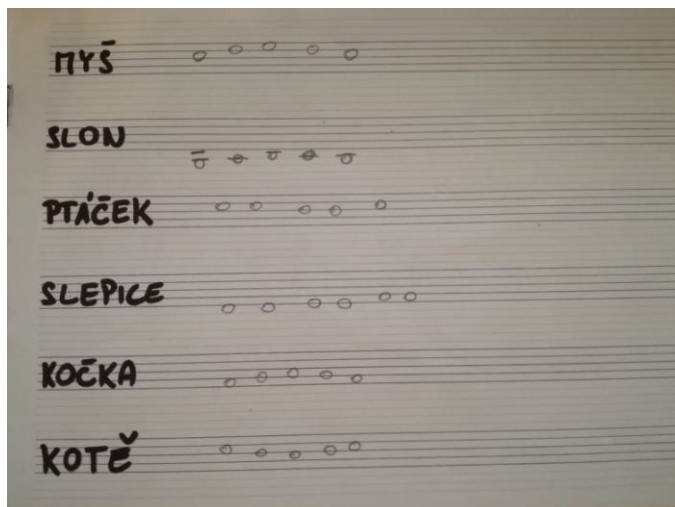 MYŠ
SLON
PTÁČEK
SLEPICE
KOČKA
KOTĚ